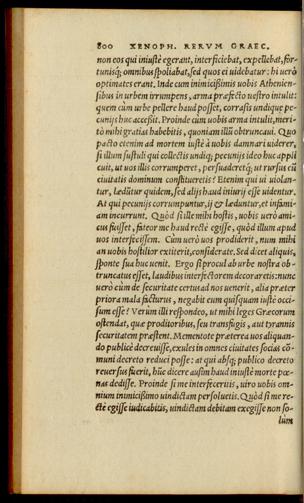 800 XENOPH. RERVM GRAEC.
non eos qui iniustè egerant, interficiebat, expellebat, for-
tunisq́; omnibus spoliabat, sed quos ei uidebatur: hi uerò
optimates erant. Inde cum inimicißimis uobis Athenien-
sibus in urbem irrumpens, arma præfecto nostro intulit:
quem cùm urbe pellere haud posset, corrasis undique pe-
cunijs huc acceßit. Proinde cùm uobis arma intulit, meri-
tò mihi gratias habebitis, quoniam illū obtruncaui. Quo
pacto etenim ad mortem iustè à uobis damnari uiderer,
si illum sustuli qui collectis undiq; pecunijs ideo huc appli
cuit, ut uos illis corrumperet, persuaderetq́; ut rursus eū
ciuitatis dominum constitueretis? Etenim qui ui uiolan-
tur, lædūtur quidem, sed alijs haud iniurij esse uidentur.
At qui pecunijs corrumpuntur, ij & læduntur, et infami-
am incurrunt. Quòd si ille mihi hostis, uobis uerò ami-
cus fuisset, fateor me haud rectè egisse, quòd illum apud
uos interfecissem. Cùm uerò uos prodiderit, num mihi
an uobis hostilior extiterit, considerate. Sed dicet aliquis,
sponte sua huc uenit. Ergo si procul ab urbe nostra ob-
truncatus esset, laudibus interfectorem decoraretis: nunc
uerò cùm de securitate certus ad nos uenerit, alia præter
priora mala facturus, negabit eum quispiam iustè occi-
sum esse? Verùm illi respondeo, ut mihi leges Græcorum
ostendat, quæ proditoribus, seu transfugis, aut tyrannis
securitatem præstent. Mementote præterea uos aliquan-
do publicè decreuisse, exules in omnes ciuitates socias cō-
muni decreto reduci posse: at qui absq; publico decreto
reuersus fuerit, hūc dicere ausim haud iniustè morte pœ-
nas dedisse. Proinde si me interfeceritis, uiro uobis om-
nium inimicißimo uindictam persoluetis. Quòd si me re-
ctè egisse iudicabitis, uindictam debitam exegisse non so-
lùm